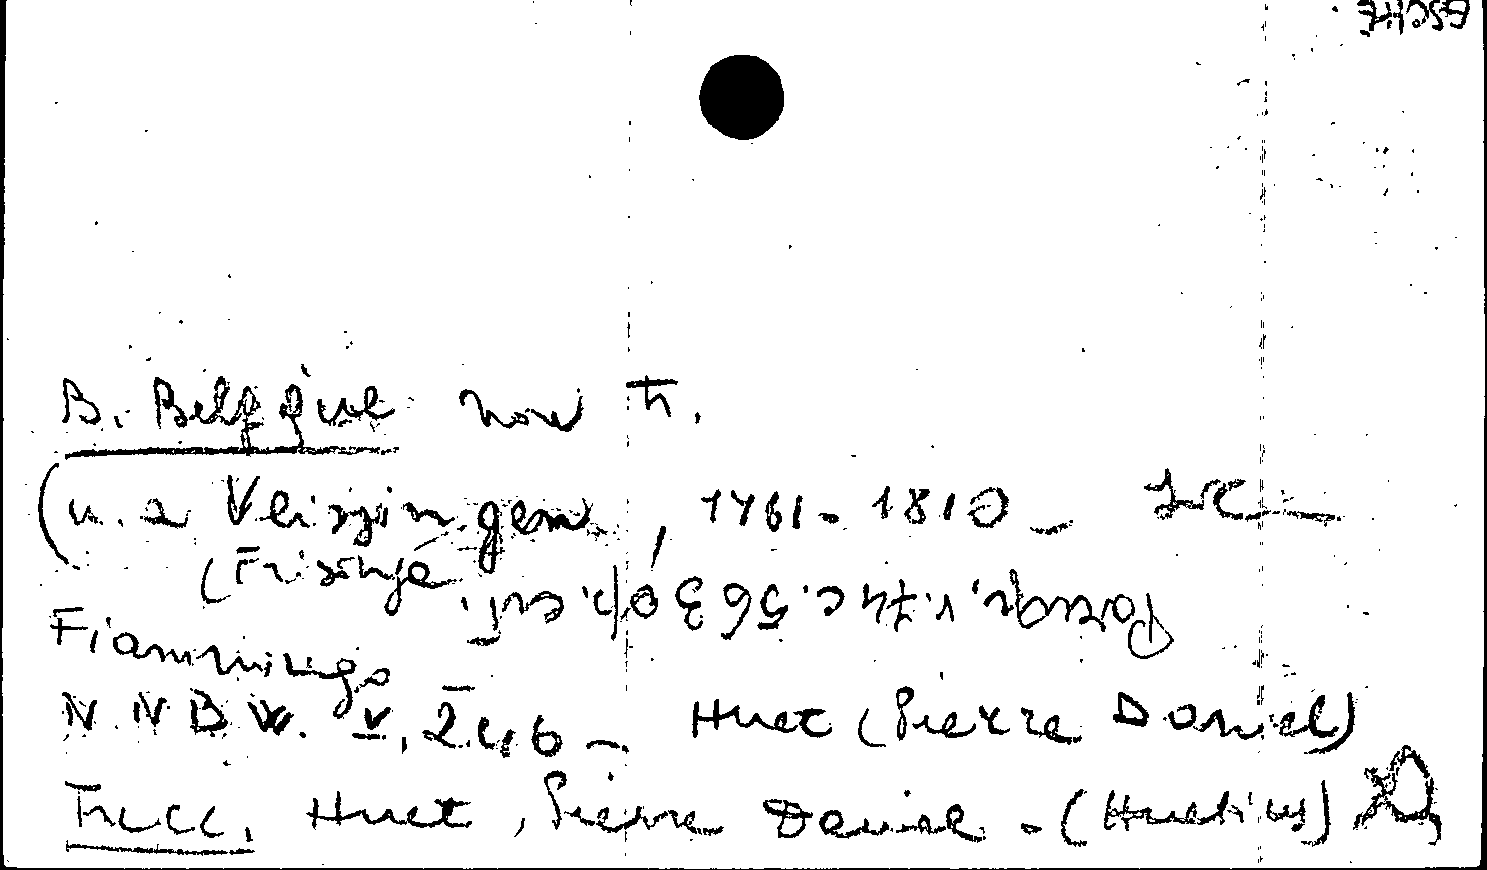 ESCHE
B. Belgique non h.
(u. a Vlissingen, 1761-1810 - LC
(Frisinje
Fiammingo
N.N.B.W. V, 246 - Huet (Pierre Daniel)
Trecc. Huet, Pierre Daniel - (Huetius)